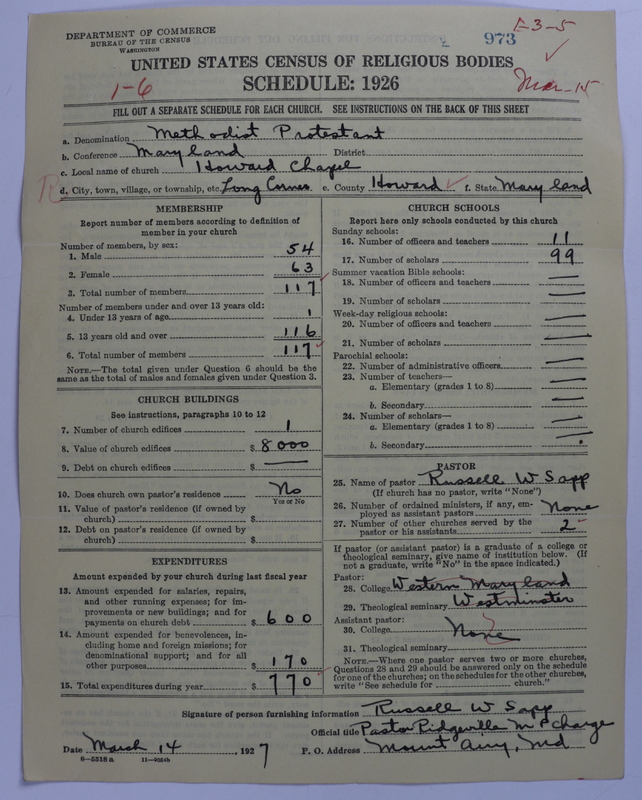 DEPARTMENT OF COMMERCE
BUREAU OF THE CENSUS
WASHINGTON
973
1-3-5
UNITED STATES CENSUS OF RELIGIOUS BODIES
SCHEDULE: 1926
1-6
Mar-15
FILL OUT A SEPARATE SCHEDULE FOR EACH CHURCH. SEE INSTRUCTIONS ON THE BACK OF THIS SHEET
a. Denomination Methodist Protestant
b. Conference Maryland District
c. Local name of church Howard Chapel
R
d. City, town, village, or township, etc. Long Corner e. County Howard f. State Maryland
MEMBERSHIP
Report number of members according to definition of
member in your church
Number of members, by sex:
1. Male 54
2. Female 63
3. Total number of members 117
Number of members under and over 13 years old:
4. Under 13 years of age 1
5. 13 years old and over 116
6. Total number of members 117
NOTE.—The total given under Question 6 should be the
same as the total of males and females given under Question 3.
CHURCH BUILDINGS
See instructions, paragraphs 10 to 12
7. Number of church edifices 1
8. Value of church edifices $ 8000
9. Debt on church edifices $ —
10. Does church own pastor's residence No
Yes or No
11. Value of pastor's residence (if owned by
church) $
12. Debt on pastor's residence (if owned by
church) $
EXPENDITURES
Amount expended by your church during last fiscal year
13. Amount expended for salaries, repairs,
and other running expenses; for im-
provements or new buildings; and for
payments on church debt $ 600
14. Amount expended for benevolences, in-
cluding home and foreign missions; for
denominational support; and for all
other purposes $ 170
15. Total expenditures during year $ 770
CHURCH SCHOOLS
Report here only schools conducted by this church
Sunday schools:
16. Number of officers and teachers 11
17. Number of scholars 99
Summer vacation Bible schools:
18. Number of officers and teachers —
19. Number of scholars —
Week-day religious schools:
20. Number of officers and teachers —
21. Number of scholars —
Parochial schools:
22. Number of administrative officers —
23. Number of teachers—
a. Elementary (grades 1 to 8) —
b. Secondary —
24. Number of scholars—
a. Elementary (grades 1 to 8) —
b. Secondary —
PASTOR
25. Name of pastor Russell W Sapp
(If church has no pastor, write "None")
26. Number of ordained ministers, if any, em-
ployed as assistant pastors None
27. Number of other churches served by the
pastor or his assistants 2
If pastor (or assistant pastor) is a graduate of a college or
theological seminary, give name of institution below. (If
not a graduate, write "No" in the space indicated.)
Pastor:
28. College Western Maryland
29. Theological seminary Westminster
Assistant pastor:
30. College None
31. Theological seminary
NOTE.—Where one pastor serves two or more churches,
Questions 28 and 29 should be answered only on the schedule
for one of the churches; on the schedules for the other churches,
write "See schedule for church."
Signature of person furnishing information Russell W Sapp
Official title Pastor Ridgeville M P Charge
Date March 14, 1927 P. O. Address Mount Airy, Md